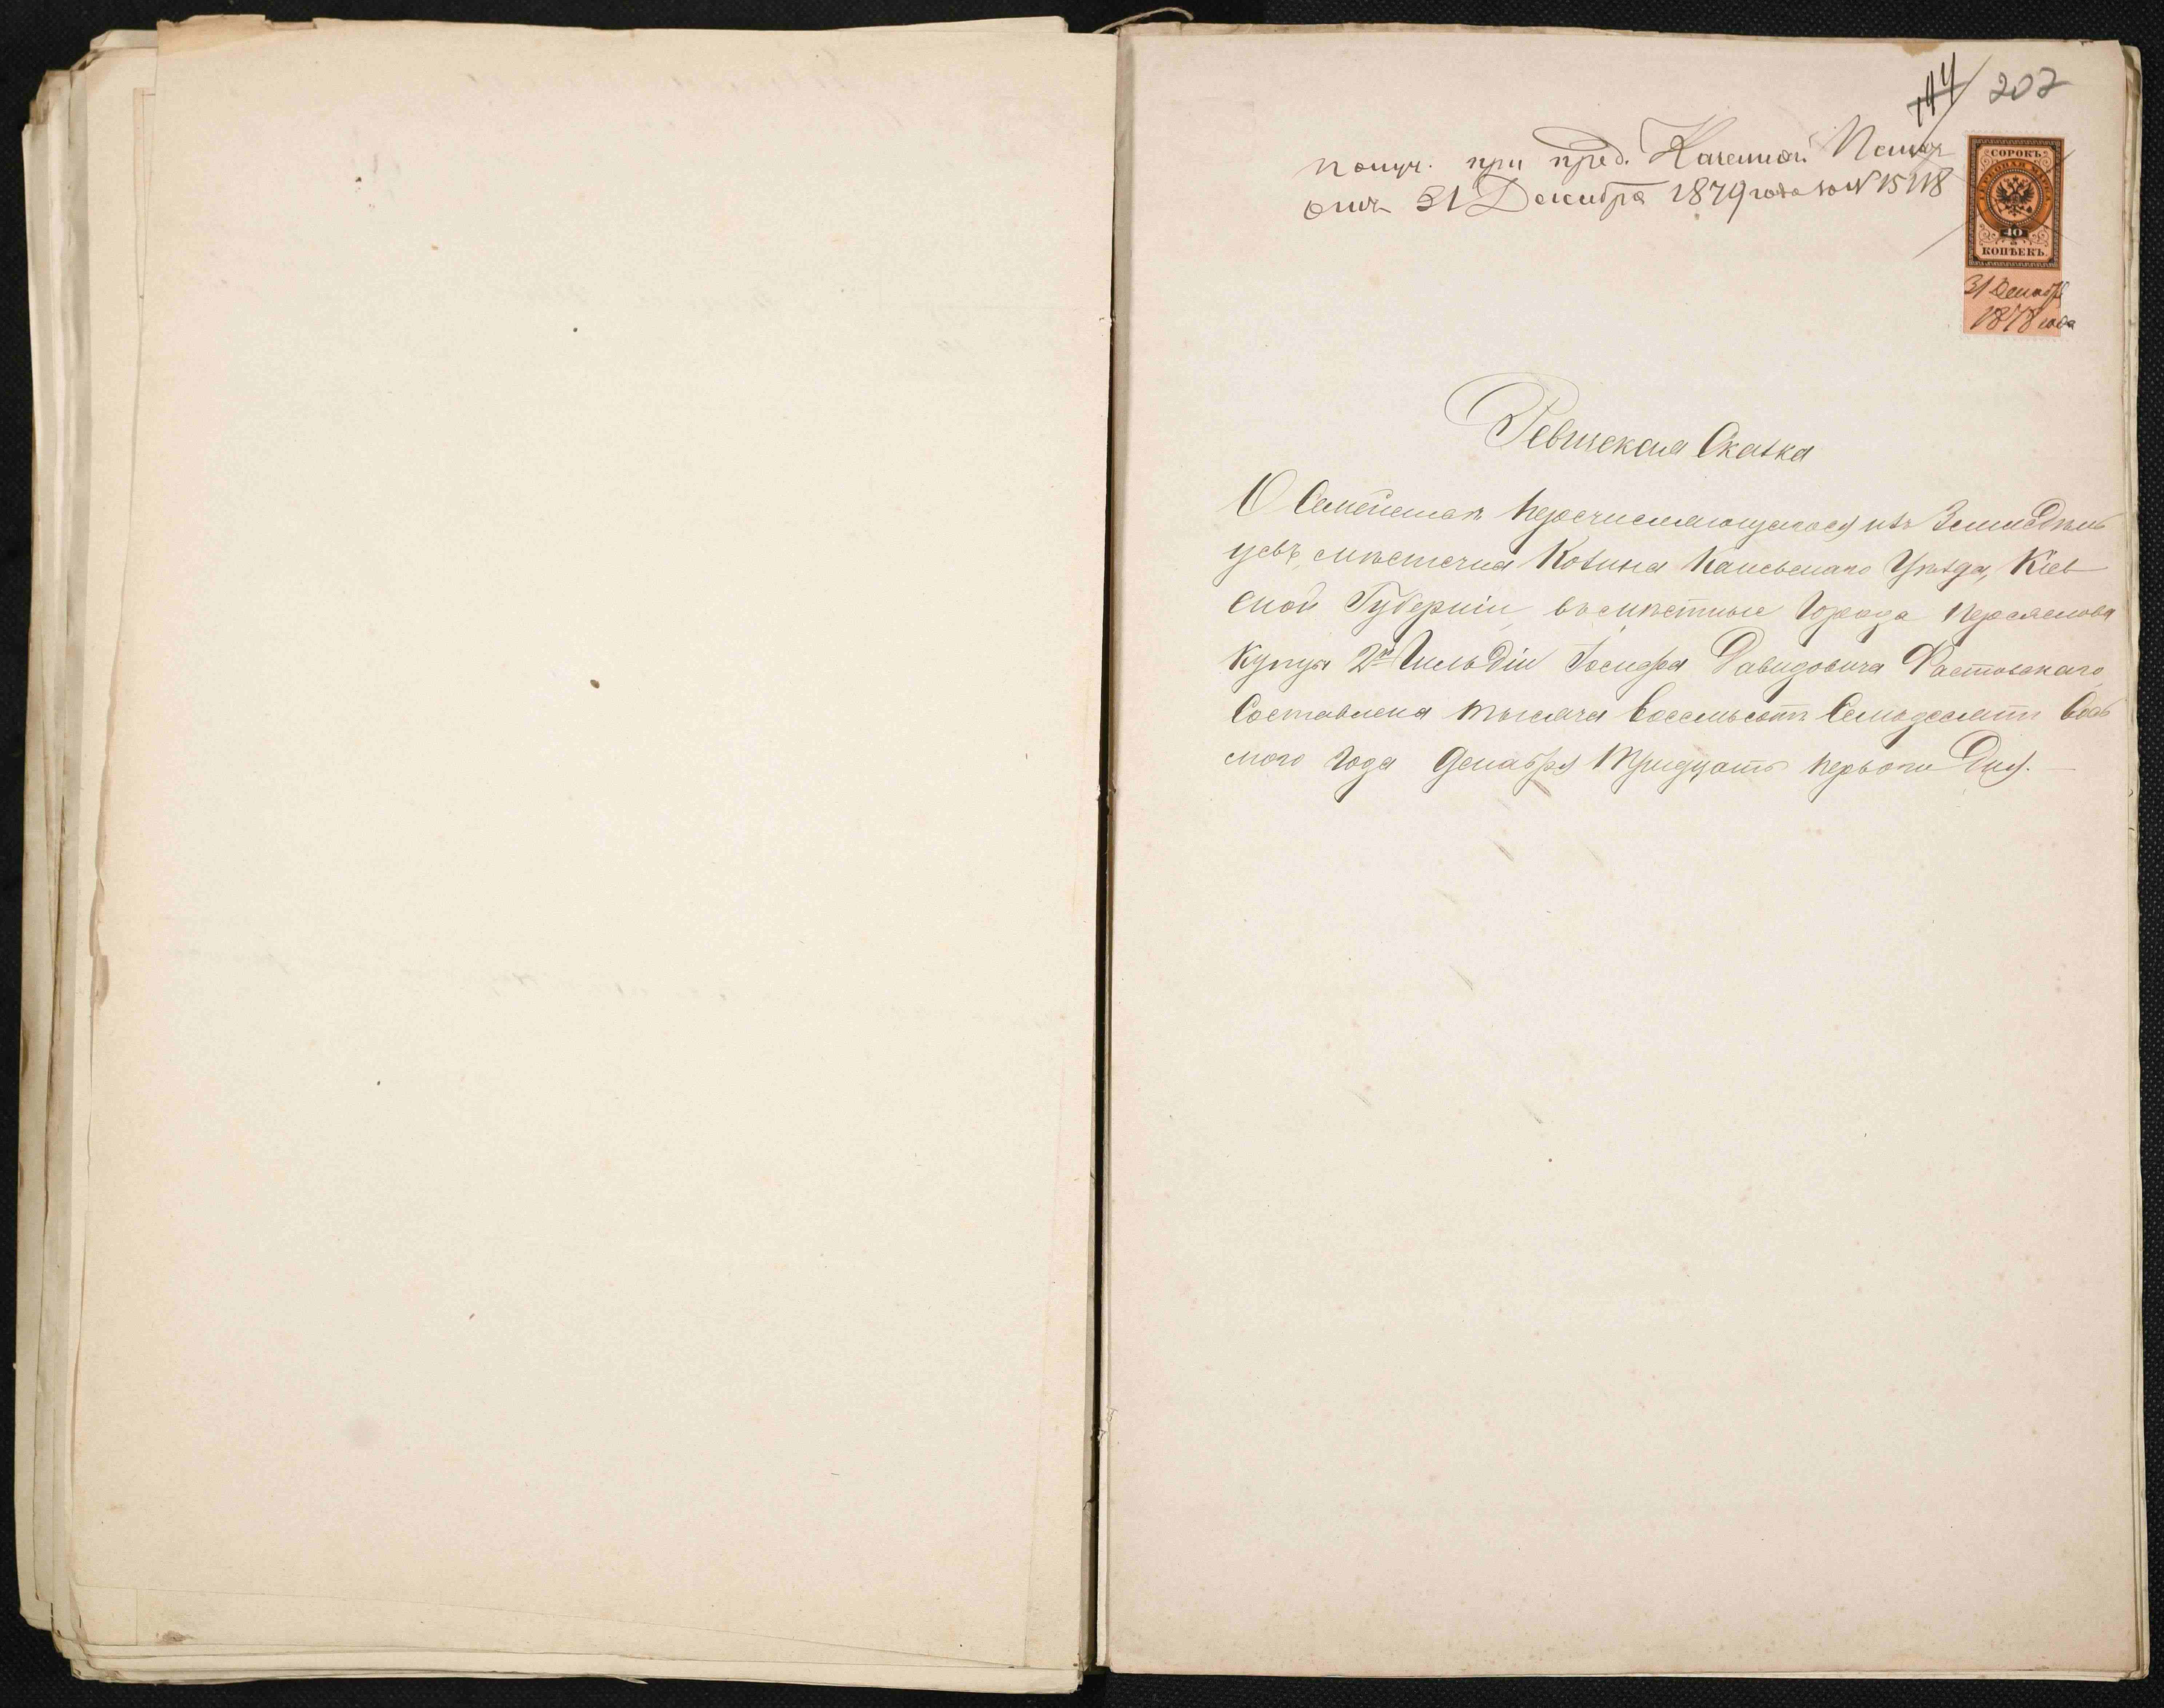 144 207
получ. при пред. Казенной Палаты
отъ 31 Декабря 1879 года за № 15118
СОРОКЪ
ГЕРБОВАЯ МАРКА
40
КОПѢЕКЪ.
31 Декабря
1878 года
Ревизская Сказка
О Семействѣ перечисляющагося изъ Земледѣль
цевъ, мѣстечка Козина Каневскаго Уѣзда, Кіев
ской Губерніи, въ мѣстные Города Переяслова
Купцы 2й Гильдіи Іосифа Давидовича Фастовскаго,
Составлена тысяча восемьсотъ Семьдесятъ Вось
мого Года Декабря Тридцать перваго Дня.